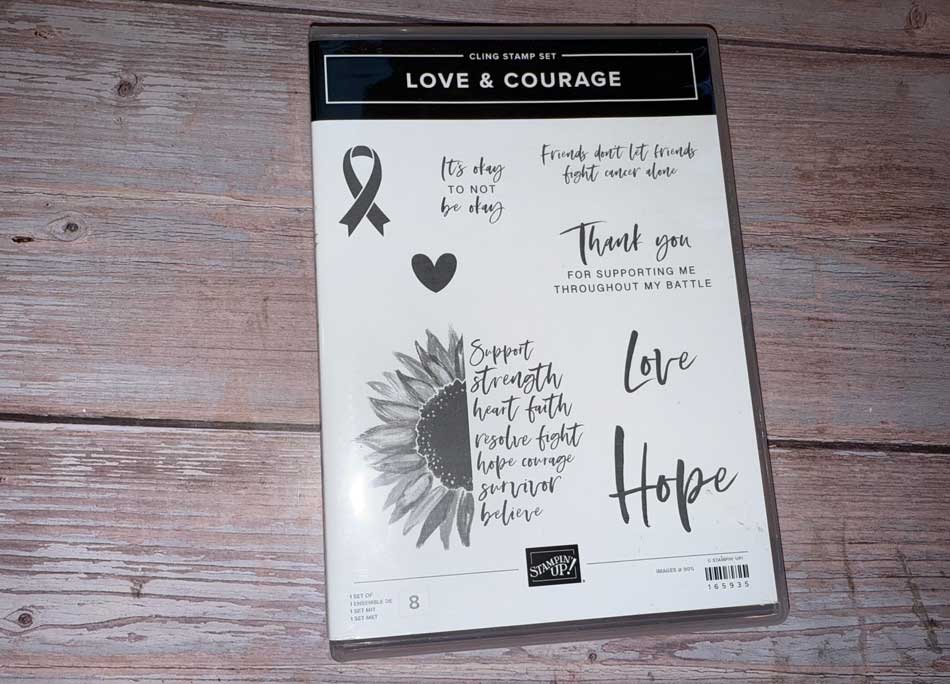 CLING STAMP SET
LOVE & COURAGE
It's okay
TO NOT
be okay
Friends don't let friends
fight cancer alone
Thank you
FOR SUPPORTING ME
THROUGHOUT MY BATTLE
Support
strength
heart faith
resolve fight
hope courage
survivor
believe
Love
Hope
STAMPIN' UP!
®
1 SET OF
1 ENSEMBLE DE
1 SET MIT
1 SET MET
8
IMAGES @ 90%
© STAMPIN' UP!
165935